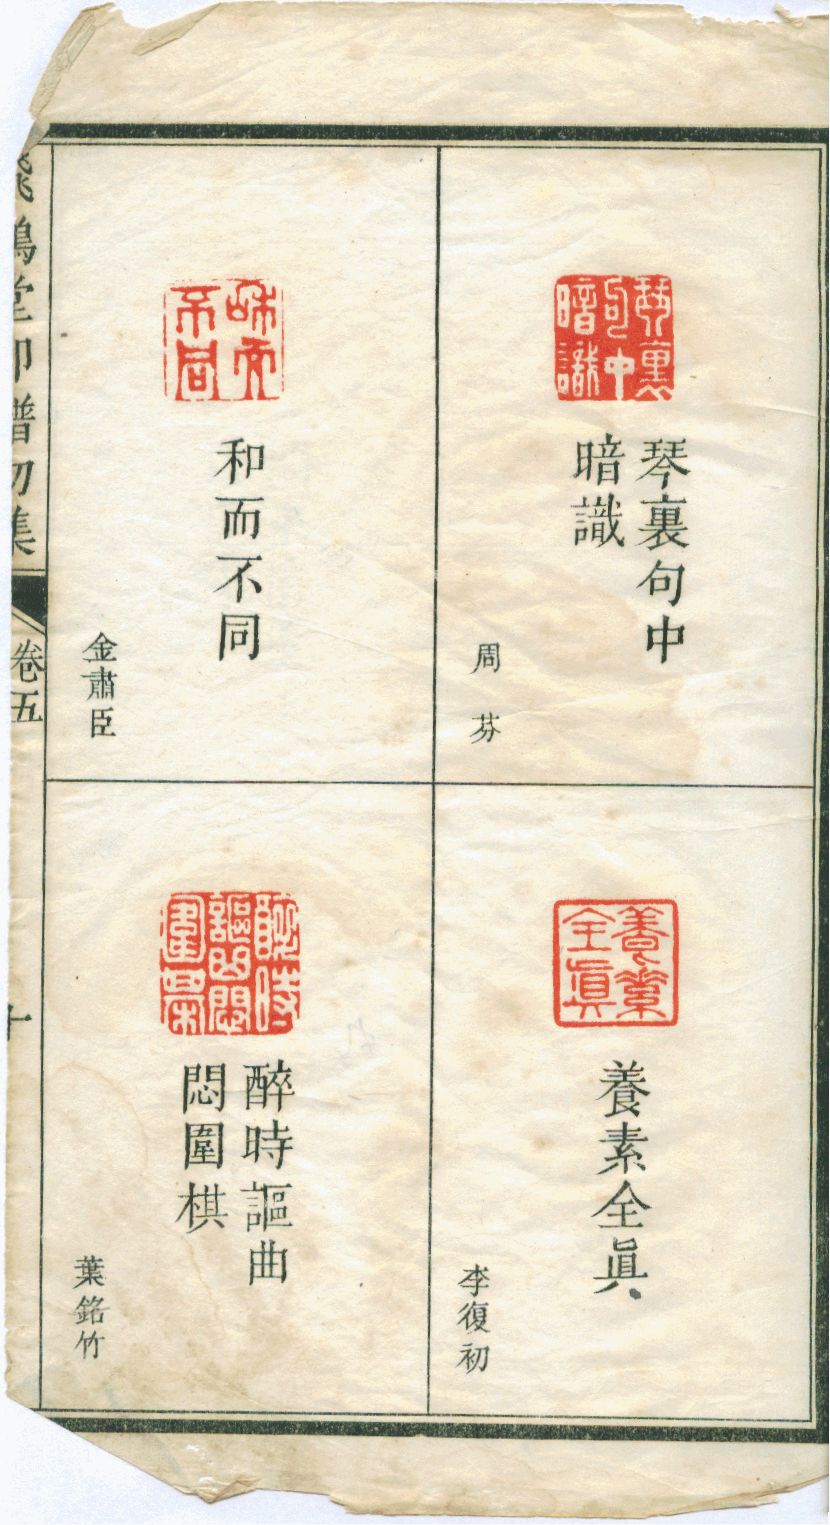 琴裏句中
暗識
周芬
養素全眞
李復初
和而不同
金肅臣
醉時謳曲
悶圍棋
葉銘竹
飛鴻堂印譜初集
卷五
十
琴裏
句中
暗識
養素
全眞
和而
不同
醉時
謳曲悶
圍棋